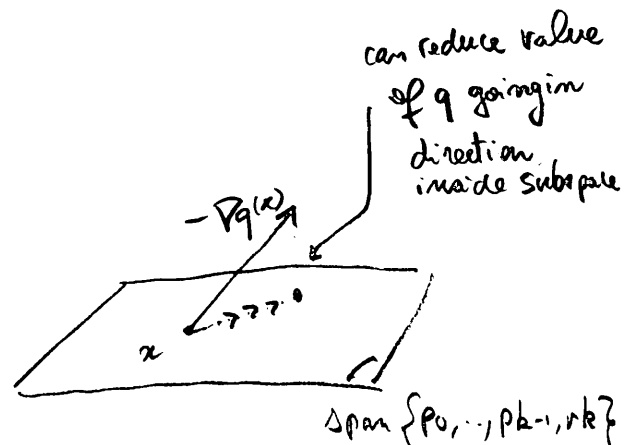 can reduce value
of q going in
direction
inside subspace
-∇q(x)
x
span {p0, .., pk-1, rk}